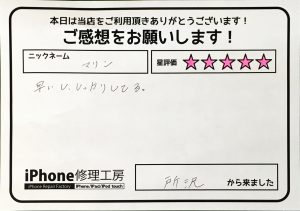 本日は当店をご利用頂きありがとうございます！
ご感想をお願いします！
ニックネーム
マリン
星評価
早いし、しっかりしてる。
iPhone修理工房
iPhone Repair Factory
iPhone/iPad/iPod touch
所沢
から来ました